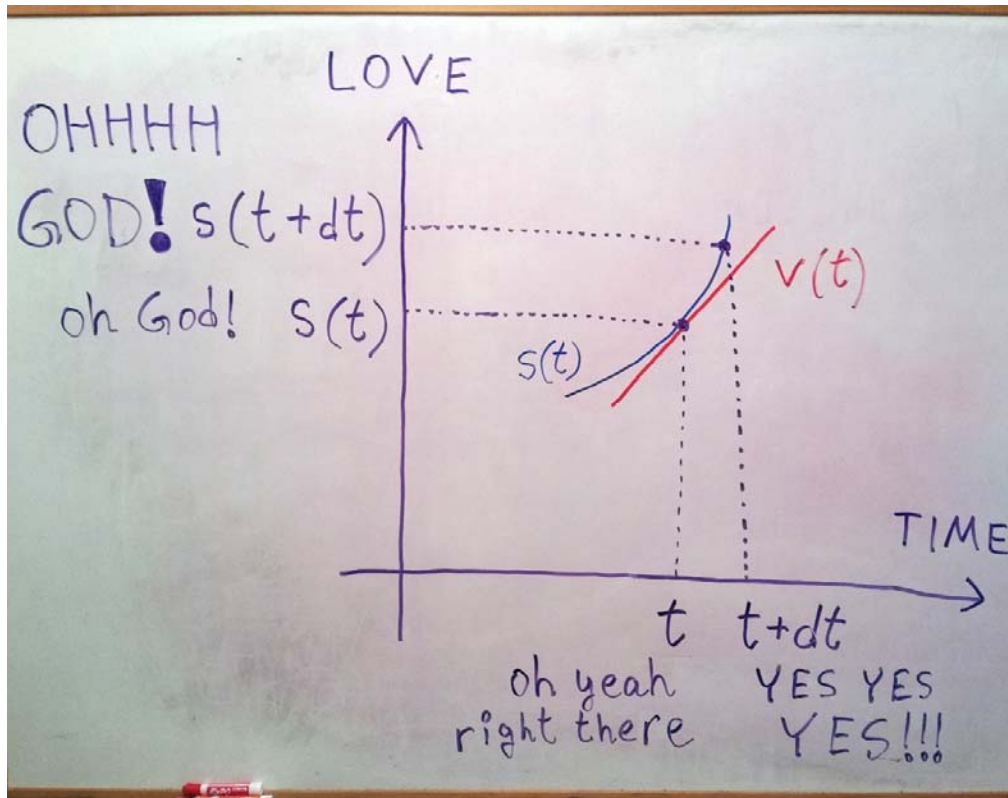 LOVE
OHHHH
GOD! s(t+dt)
oh God! s(t)
v(t)
s(t)
TIME
t t+dt
oh yeah YES YES
right there YES!!!